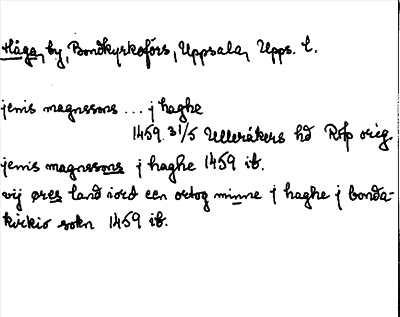 Håga, by, Bondkyrkofors, Uppsala, Upps. l.
jenis magnssons ... j haghe
1459 31/5 Ulleråkers hd Rfp orig
jenis magnssons j haghe 1459 ib.
vij øres land iord een ortog minne j haghe j bonda-
kirkio sokn 1459 ib.